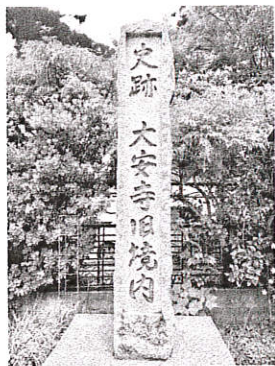 史跡 大安寺旧境内